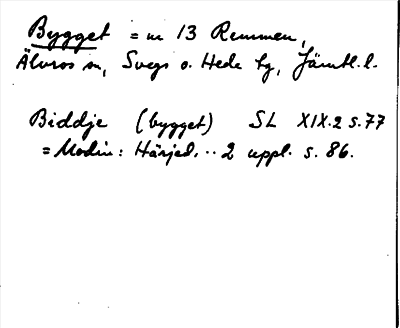 Bygget = nr 13 Remmen,
Älvros sn, Svegs o. Hede hg, Jämtl. l.
Biddje (bygget) SL XIX.2 s. 77
= Modin: Härjed. .. 2 uppl. s. 86.